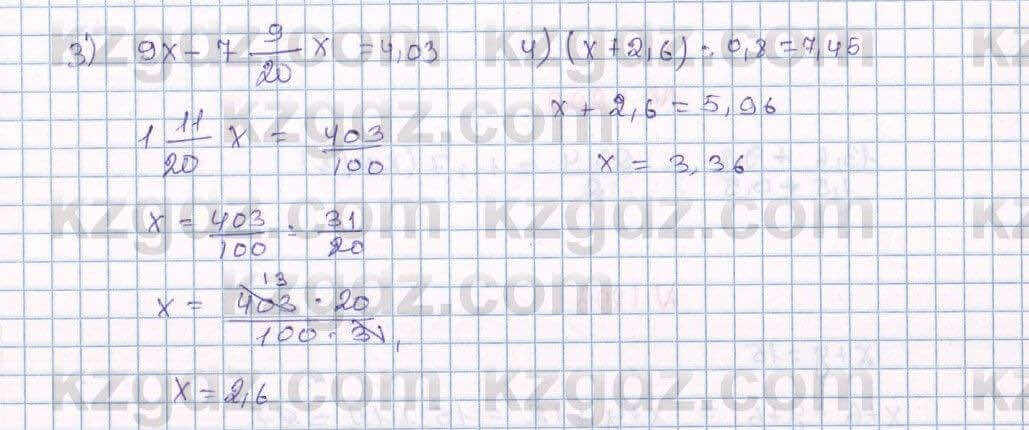 3) 9x - 7 9/20 x = 4,03
1 11/20 x = 403/100
x = 403/100 : 31/20
13
x = 403 · 20 / 100 · 31
1
x = 2,6
4) (x + 2,6) : 0,8 = 7,45
x + 2,6 = 5,96
x = 3,36
kzgdz.com kzgdz.com
kzgdz.com
kzgdz.com kzgdz.com
kzgdz.com
kzgdz.com kzgdz.com